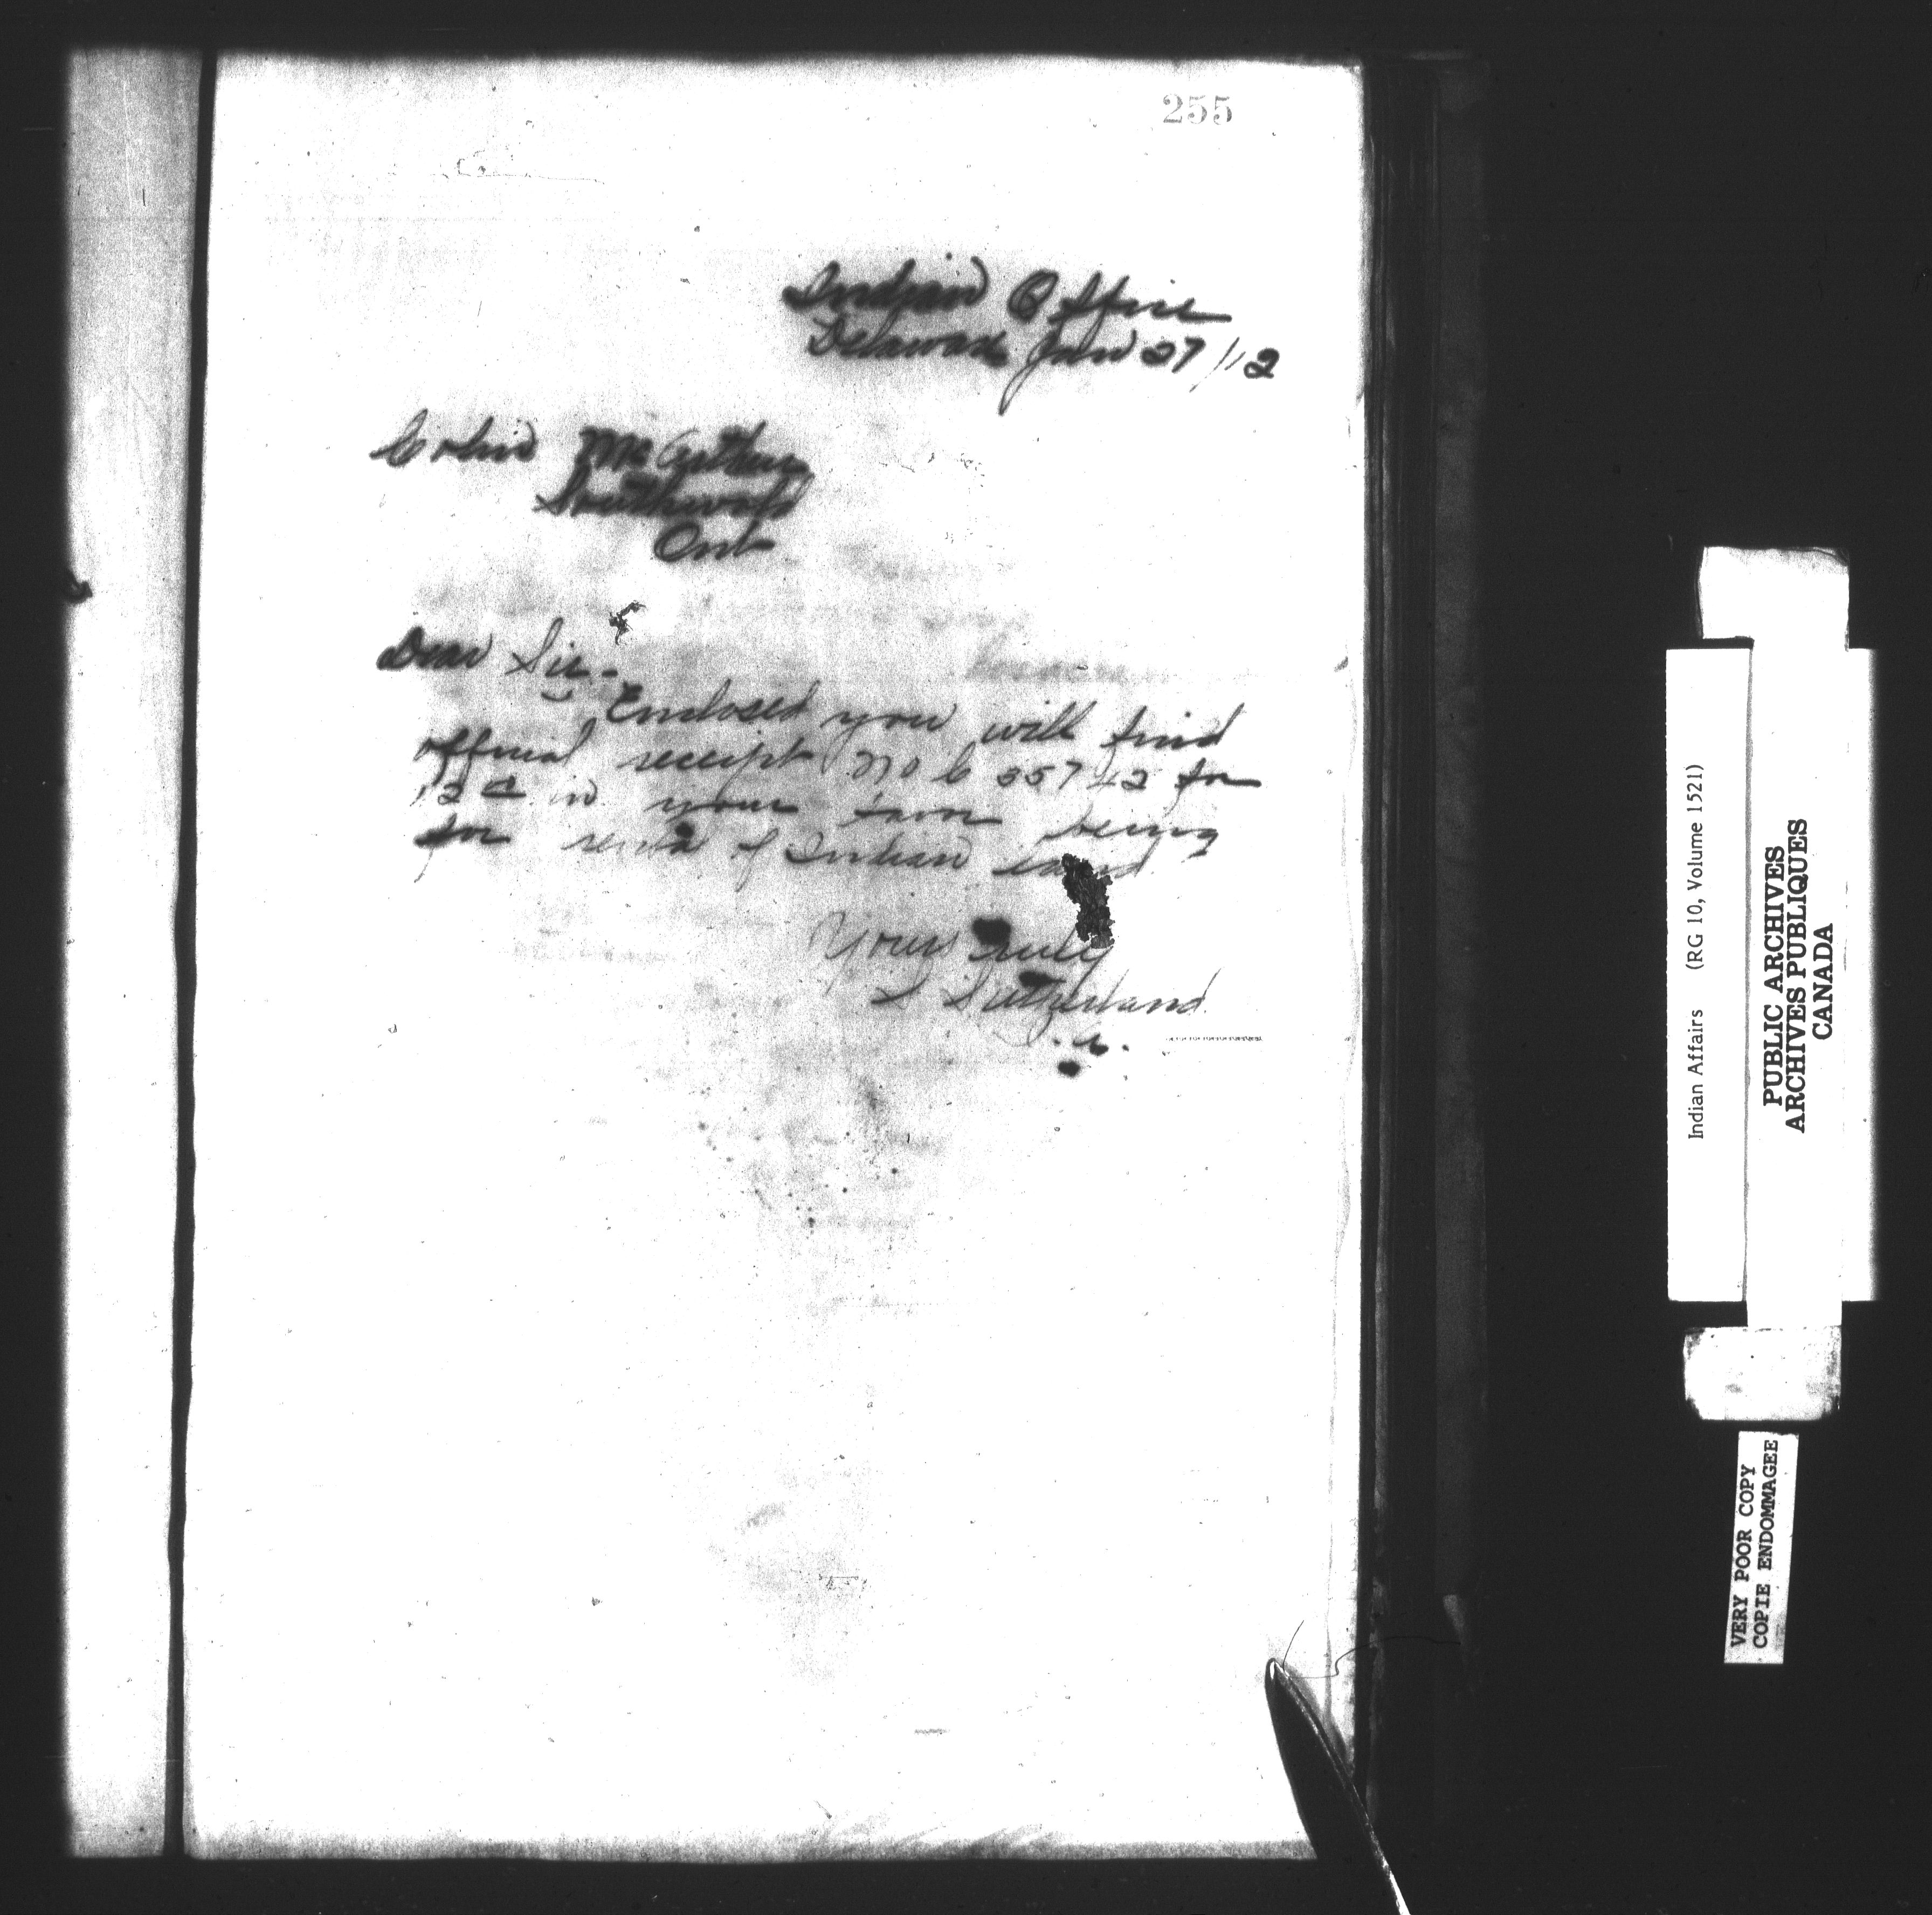 255
Indian Office
Delaware Jan 27/12
Colin McArthur
Southwold
Ont
Dear Sir-
Enclosed you will find
official receipt No C 35742 for
in your favor being
for rent of Indian land
Yours truly
S Sutherland
Indian Affairs (RG 10, Volume 1521)
PUBLIC ARCHIVES
ARCHIVES PUBLIQUES
CANADA
VERY POOR COPY
COPIE ENDOMMAGEE